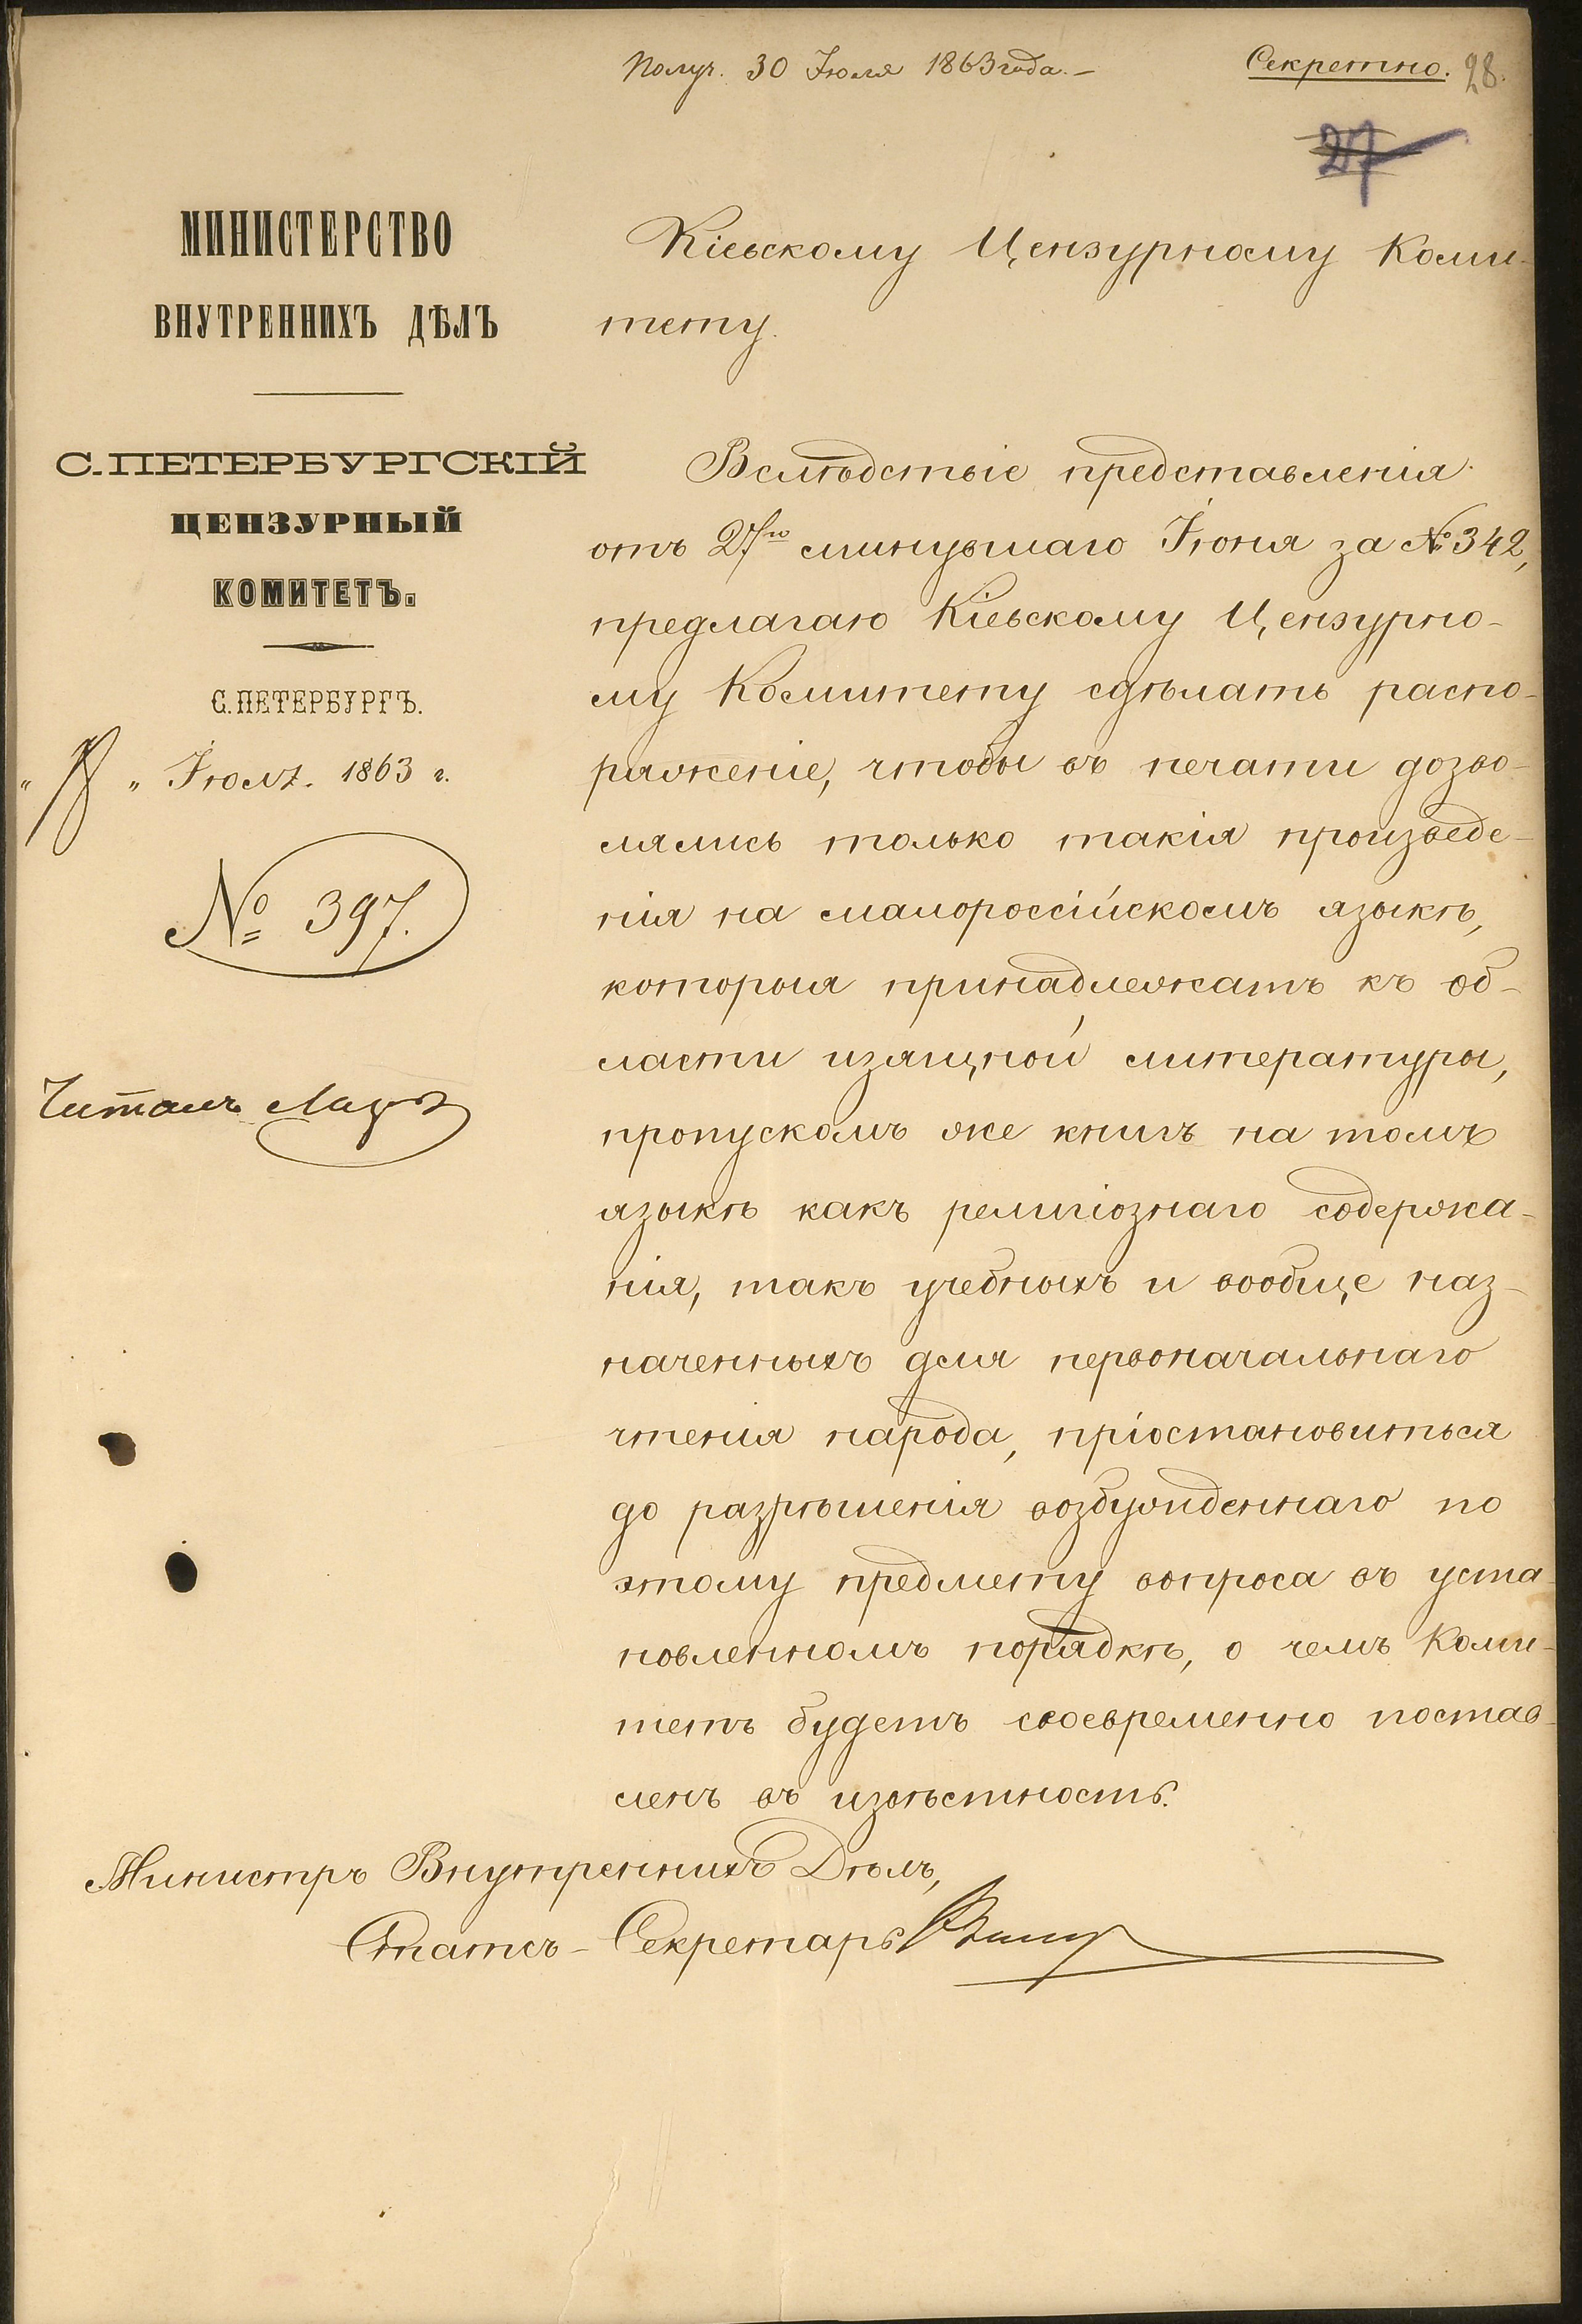 Получ. 30 Іюля 1863 года. –
Секретно. 28.
27
МИНИСТЕРСТВО
ВНУТРЕННИХЪ ДѢЛЪ
С.ПЕТЕРБУРГСКІЙ
ЦЕНЗУРНЫЙ
КОМИТЕТЪ.
С.ПЕТЕРБУРГЪ.
" 18 " Іюля. 1863 г.
№ 397.
Читалъ
Кіевскому Цензурному Коми-
тету.
Вслѣдствіе представленія
отъ 27го минувшаго Іюня за № 342,
предлагаю Кіевскому Цензурно-
му Комитету сдѣлать распо-
ряженіе, чтобы въ печати дозво-
лялись только такія произведе-
нія на малороссійскомъ языкѣ,
которыя принадлежатъ къ об-
ласти изящной литературы,
пропускомъ же книгъ на томъ
языкѣ какъ религіознаго содержа-
нія, такъ учебныхъ и вообще наз-
наченныхъ для первоначальнаго
чтенія народа, пріостановиться
до разрѣшенія возбужденнаго по
этому предмету вопроса въ уста-
новленномъ порядкѣ, о чемъ Коми-
тетъ будетъ своевременно постав-
ленъ въ извѣстность.
Министръ Внутреннихъ Дѣлъ,
Статсъ-Секретарь